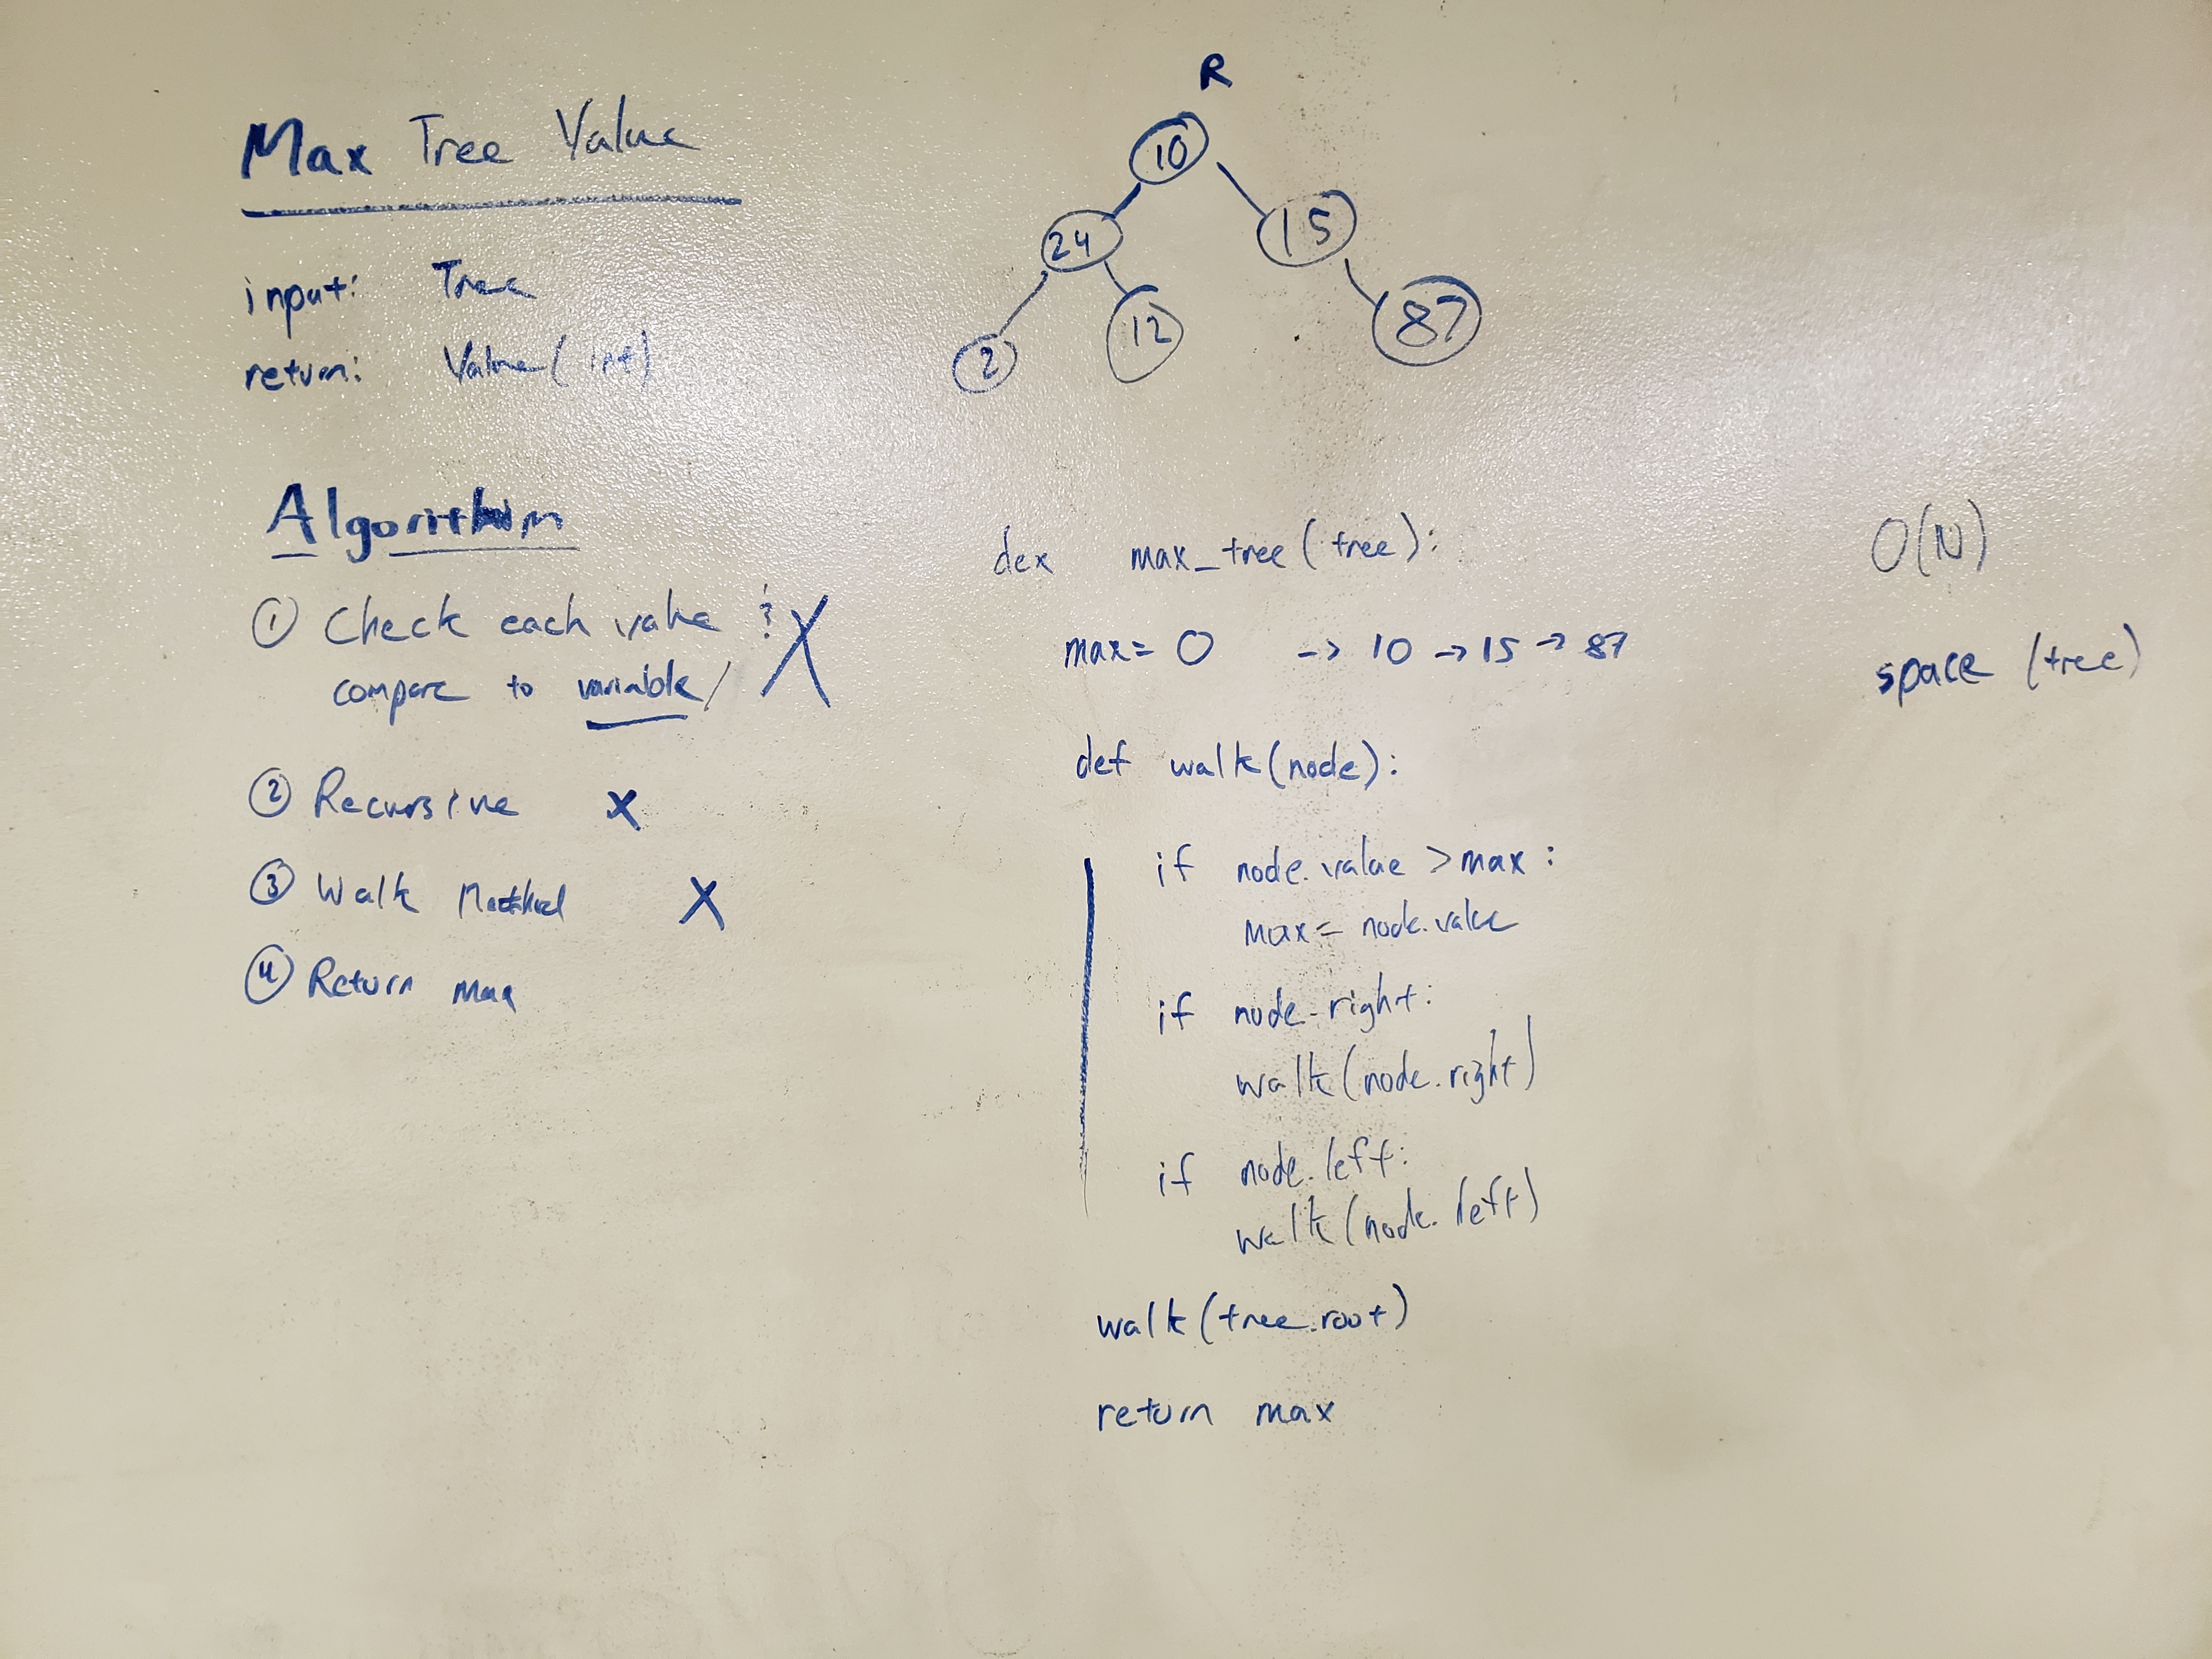 Max Tree Value
input: Tree
return: Value(int)
R
10
24
15
2
12
87
Algorithm
① Check each value ?
compare to variable/ X
② Recursive X
③ Walk Method X
④ Return max
dex max_tree(tree):
max= 0 -> 10 -> 15 -> 87
def walk(node):
if node.value > max :
max = node.value
if node.right:
walk(node.right)
if node.left:
walk(node.left)
walk(tree.root)
return max
O(N)
space (tree)